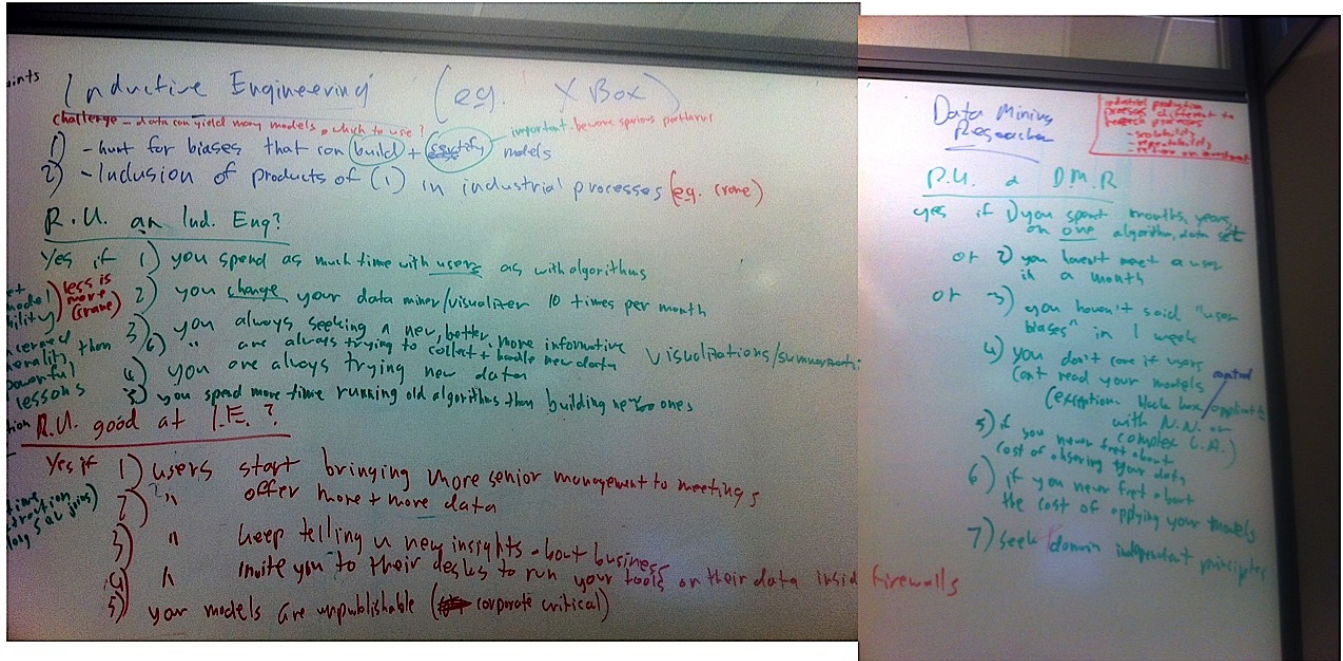 oints
Inductive Engineering (eg. X Box)
challenge - data can yield many models, which to use?
important. beware spurious patterns
1) - hunt for biases that can build + models
2) - Inclusion of products of (1) in industrial processes (eg. crane)
R.U. an Ind. Eng?
Yes if 1) you spend as much time with users as with algorithms
less is
more
(crane)
2) you change your data miner/visualizer 10 times per month
3) you always seeking a new, better, more informative visualizations/summ
6) " are always trying to collect + handle new data
4) you are always trying new data
5) you spend more time running old algorithms than building new ones
than
powerful
lessons
R.U. good at I.E.?
Yes if 1) users start bringing more senior management to meetings
2) " offer more + more data
3) " keep telling u new insights about business
4) " invite you to their desks to run your tools on their data inside firewalls
5) your models are unpublishable (corporate critical)
Data Mining
Researcher
industrial production
process different to
research processes
- scalability
- repeatability
- return on investment
R.U. a D.M.R
yes if 1) you spent months, years,
on one algorithm, data set
or 2) you haven't met a user
in a month
or 3) you haven't said "user
biases" in 1 week
4) you don't care if users
can't read your models
control
(exception. black box / applicats
with N.N. or
complex C.A.)
5) if you never fret about
cost of obsering your data
6) if you never fret about
the cost of applying your models
7) seek domain independent principles